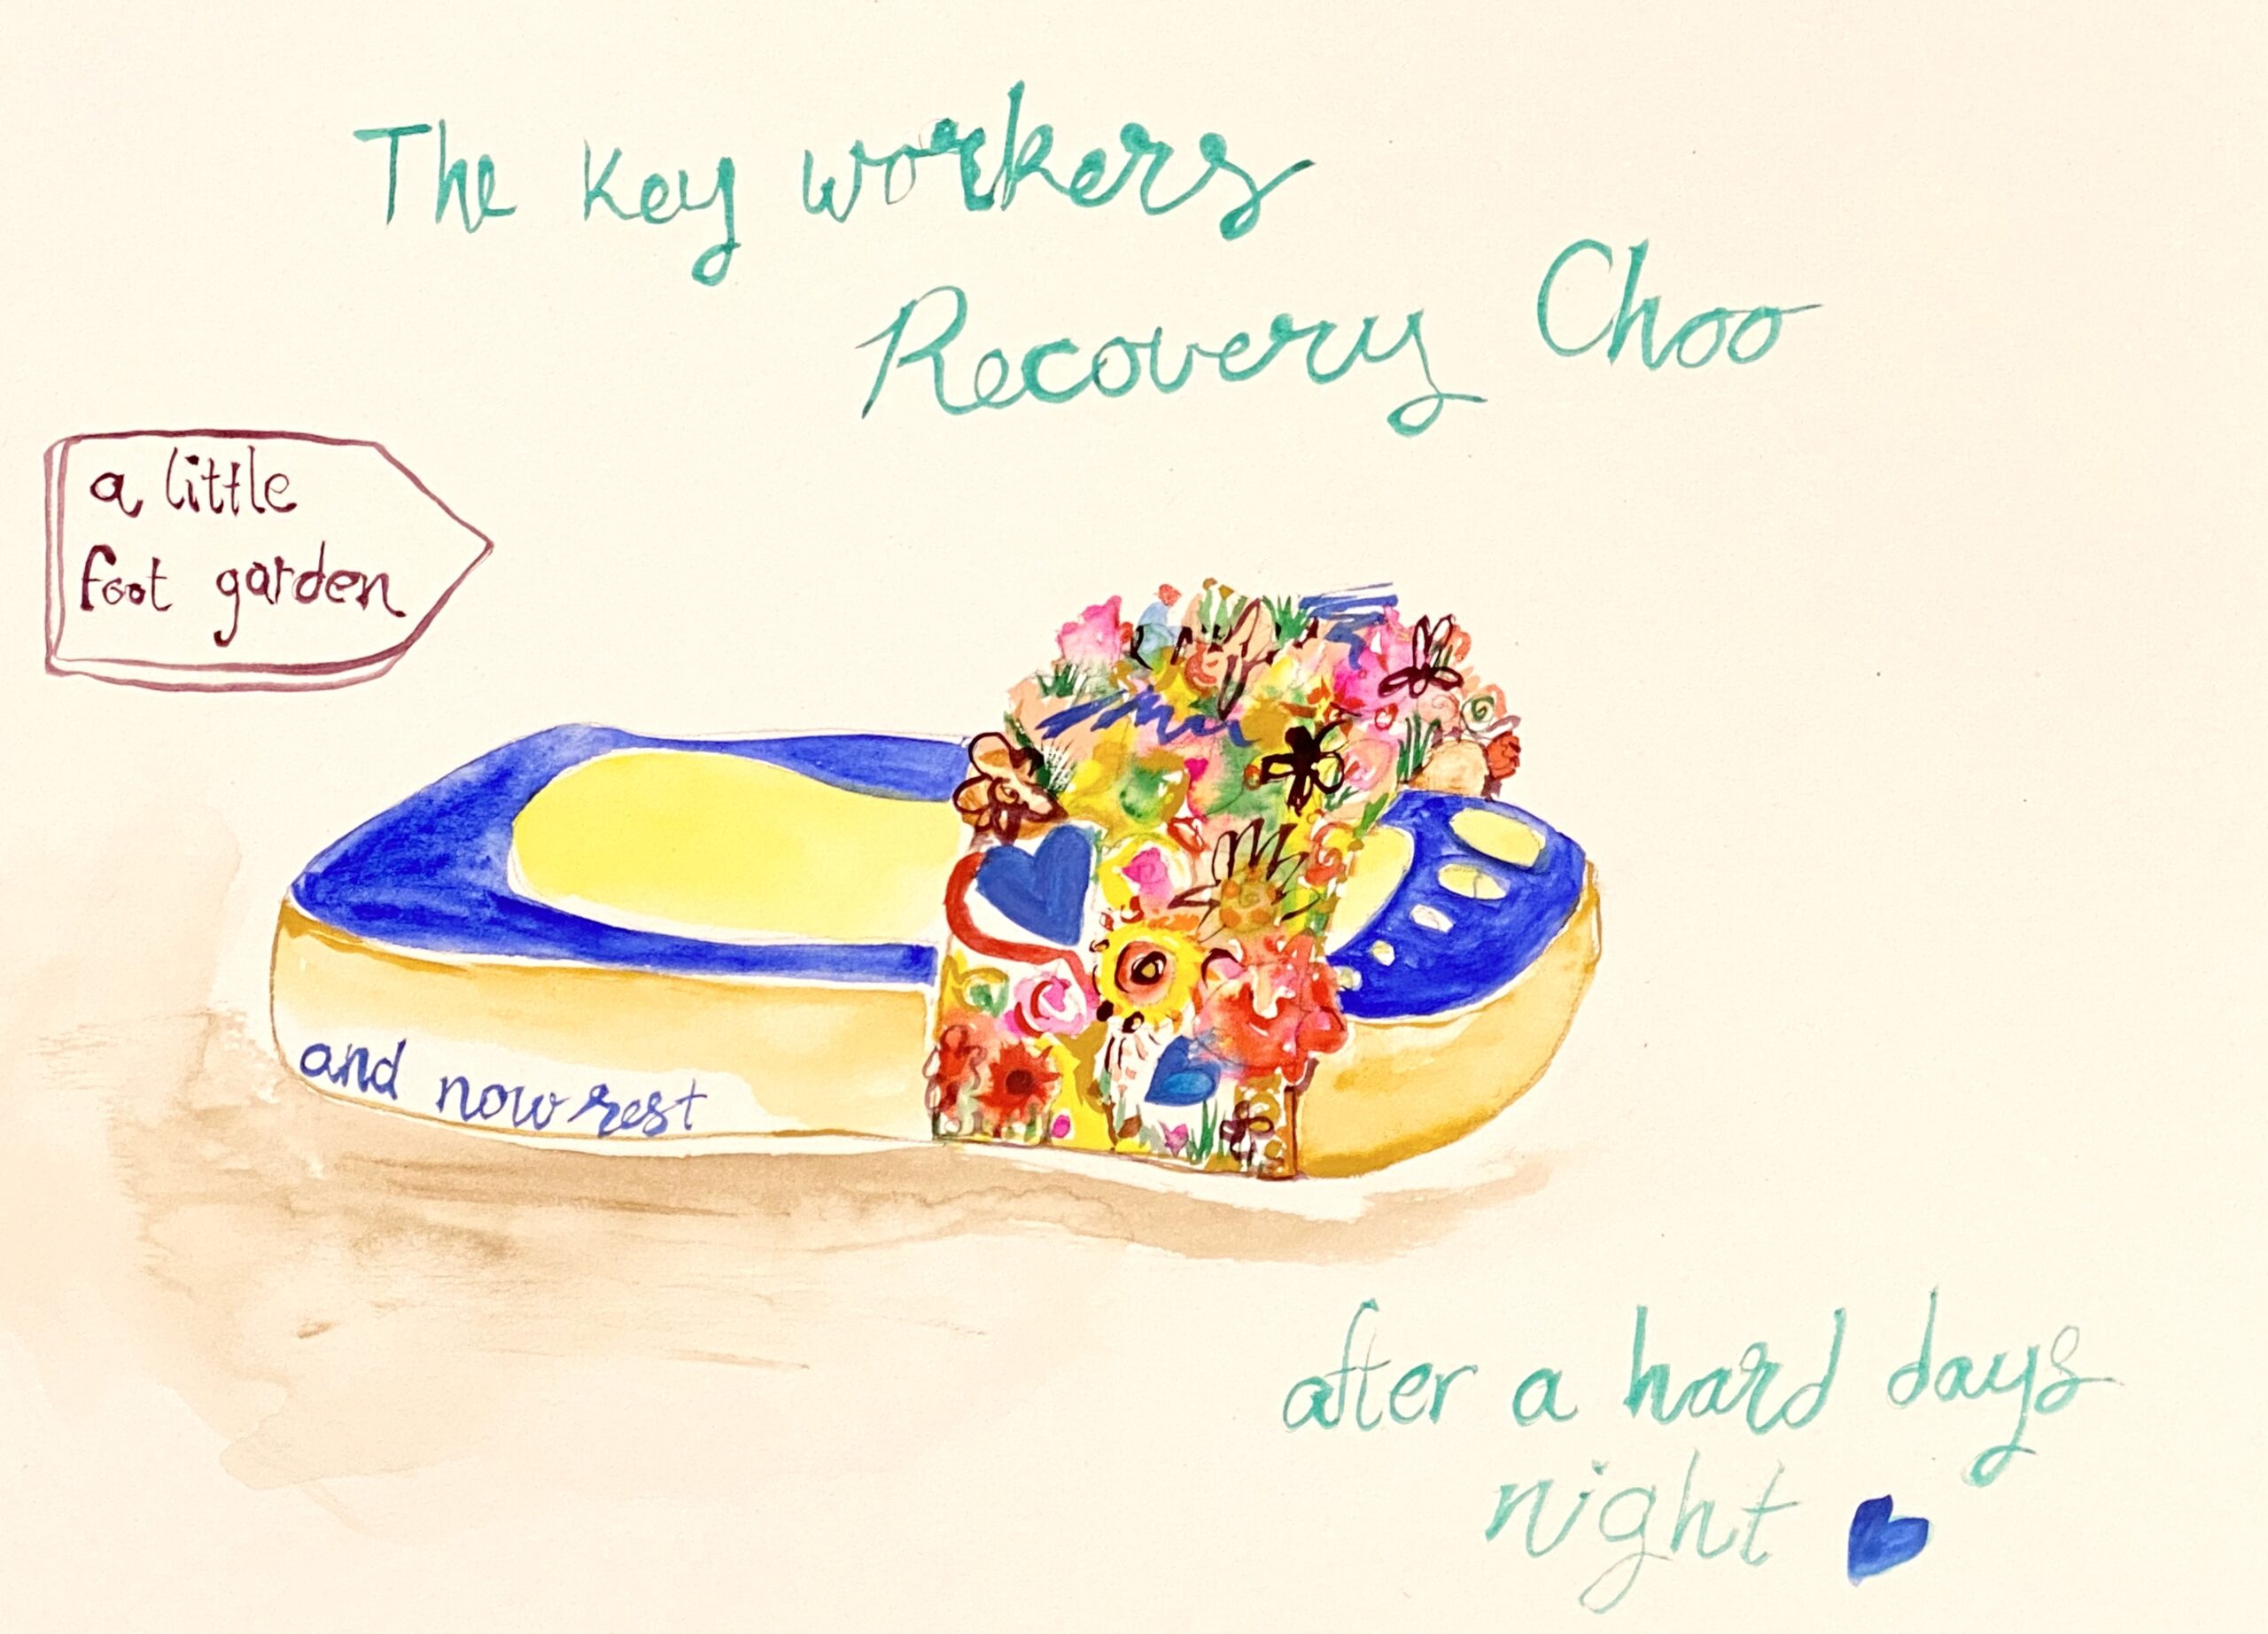 The Key workers
Recovery Choo
a little
foot garden
and now rest
after a hard days
night